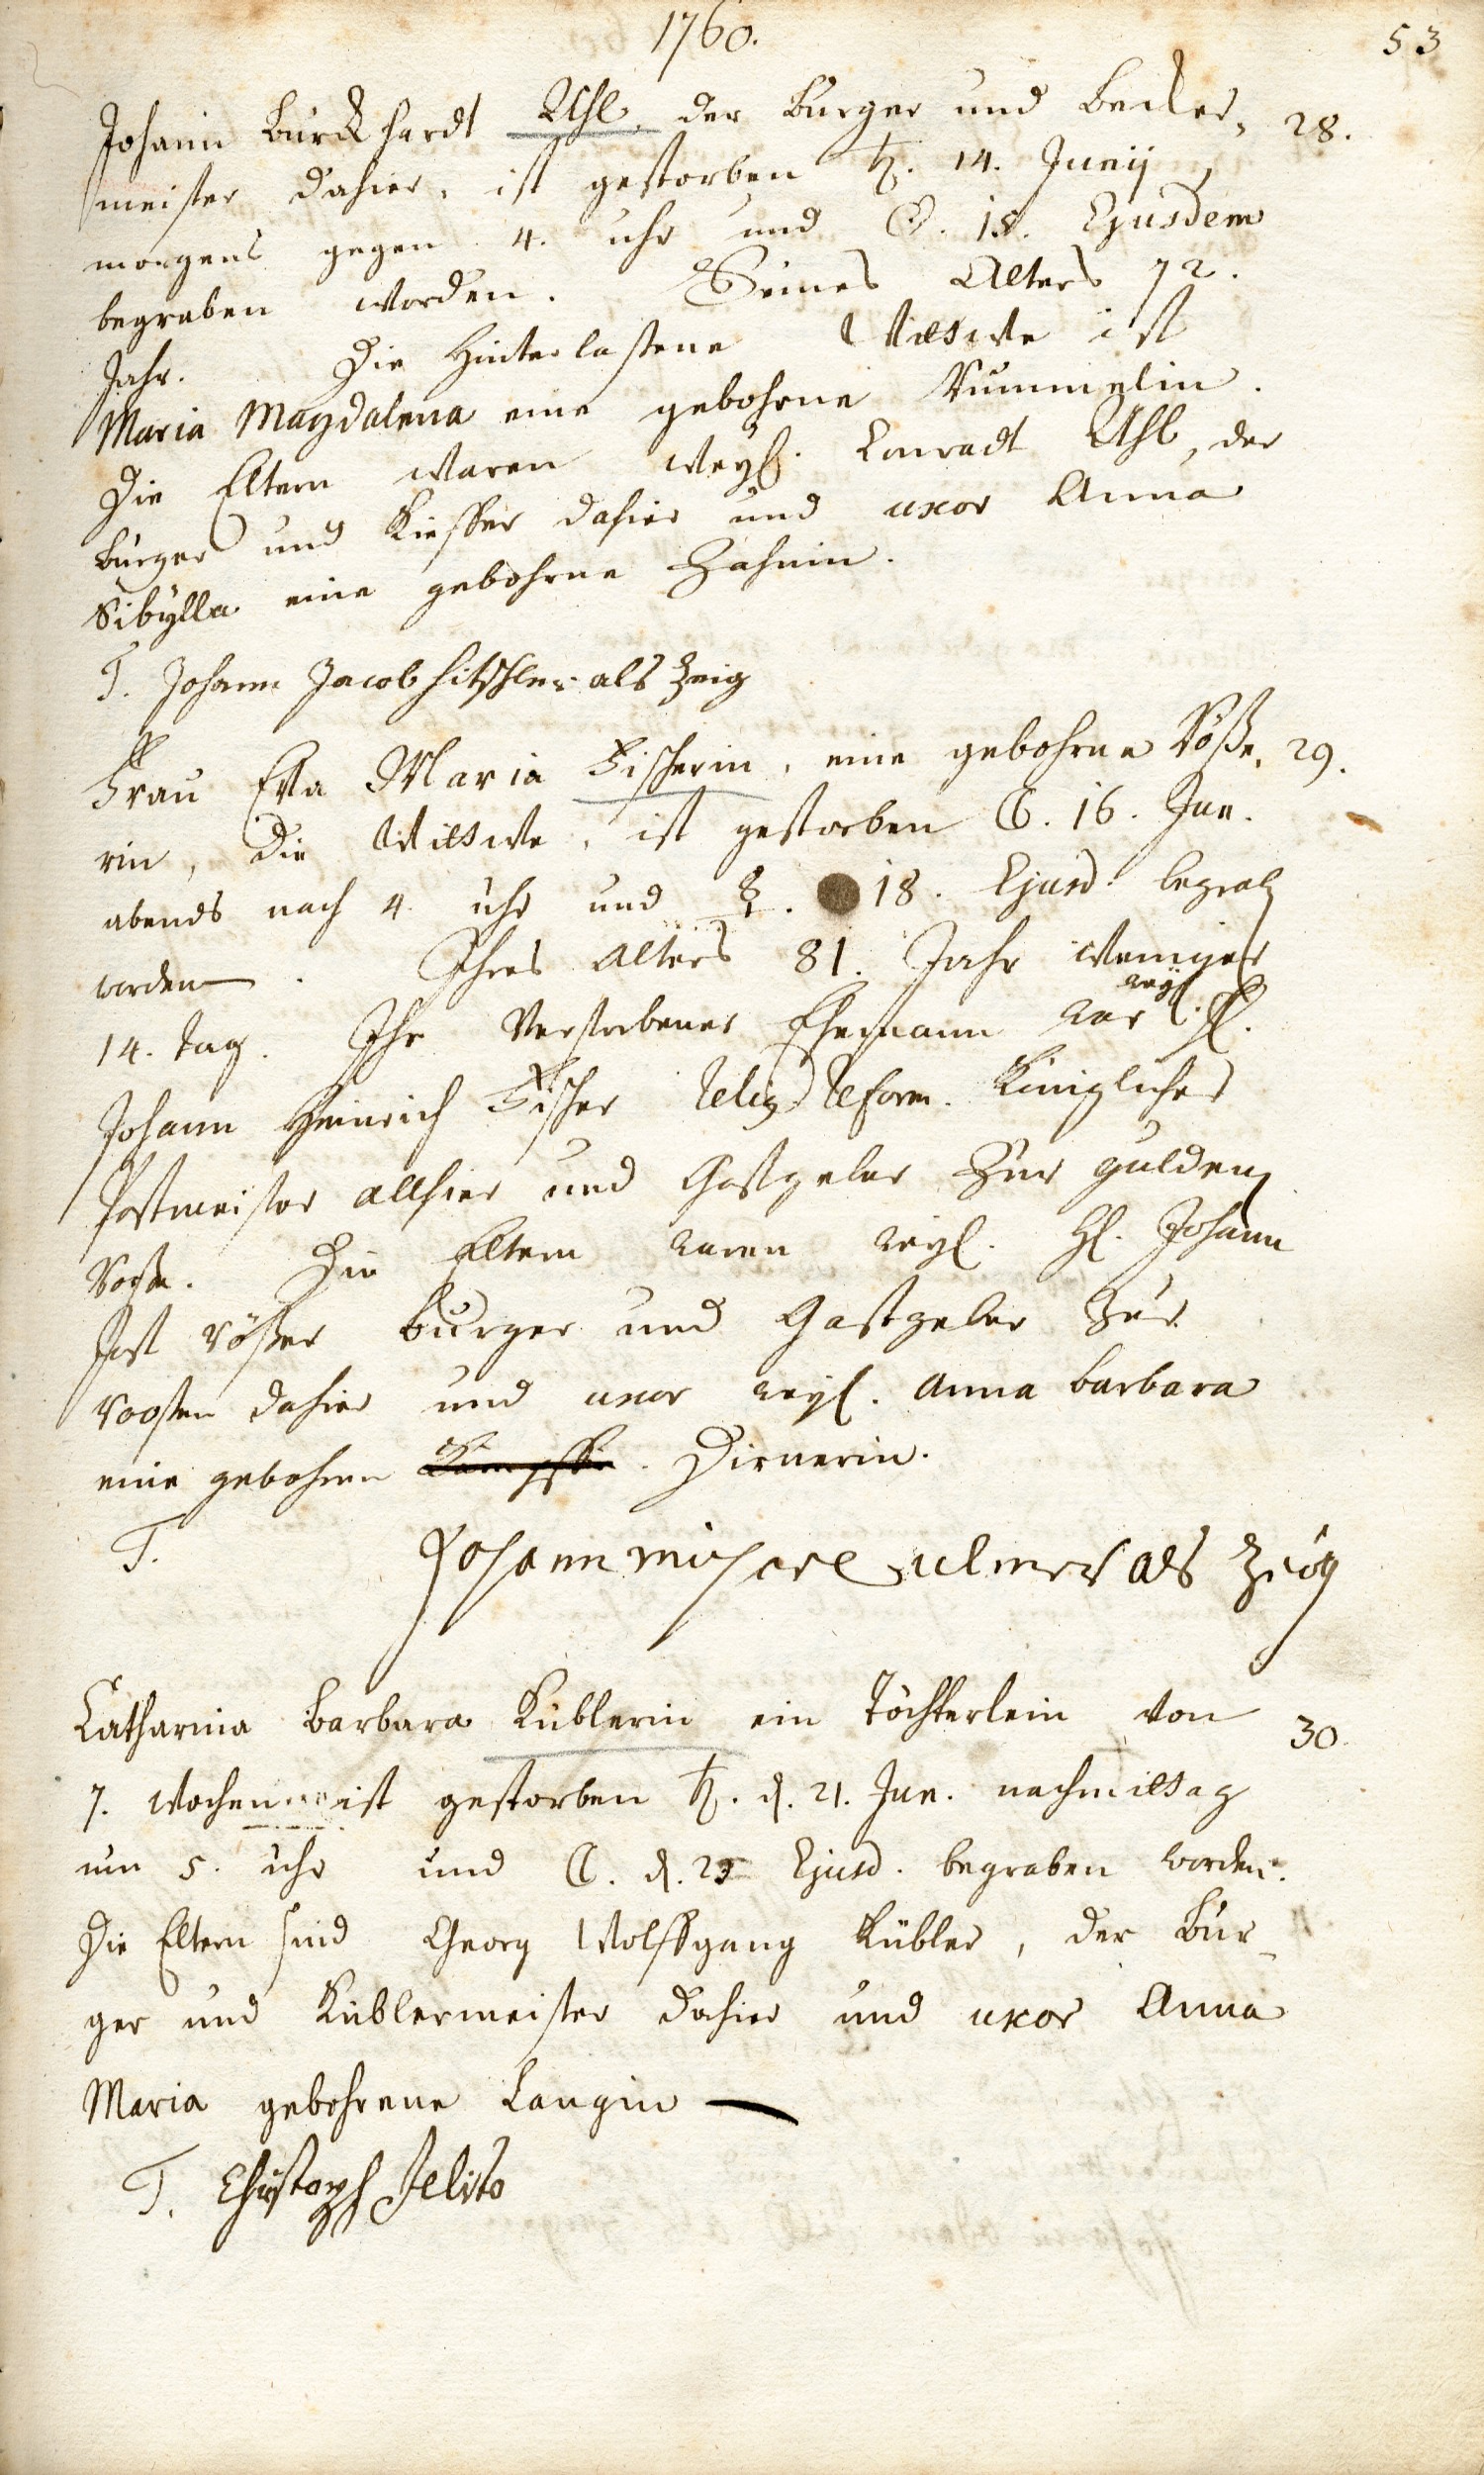 1760.
53
Johann Burckhardt Uhl, der Burger und Becker, 28.
meister dahier, ist gestorben ♄. 14. Junij
morgens gegen 4. uhr und ☉. 15. Ejusdem
begraben worden. Seines Alters 72.
Jahr. Die Hinterlaßene Wittwe ist
Maria Magdalena eine gebohrne Rummelin.
Die Eltern waren weyl. Conradt Uhl, der
Burger und Kieffer dahier und uxor Anna
Sibylla eine gebohrne Zahnin.
T. Johann Jacob Hitschler als Zeig
Frau Eva Maria Fischerin, eine gebohrne Röße, 29.
rin, die Wittwe, ist gestorben ☾. 16. Jun.
abends nach 4. uhr und ☿. 18. Ejusd. begrab
worden. Ihres alters 81. Jahr weniger
14. Tag. Ihr Verstorbener Ehemann war weyl. H.
Johann Heinrich Fischer Relig. Reform. Königlicher
Postmeister allhier und Gastgeber Zur gulden
Roßen. Die Eltern waren weyl. H. Johann
Jost Rößer burger und Gastgeber Zur
Rooßen dahier und uxor weyl. Anna barbara
eine gebohren Dirnerin.
T. Johann michael ulmer als Zeüg
Catharina Barbara Küblerin ein Töchterlein von 30.
7. Wochen ist gestorben ♄. d. 21. Jun. nachmittag
um 5. uhr und ☾. d. 23 Ejusd. begraben worden.
Die Eltern sind Georg Wolffgang Kübler, der Bur-
ger und Küblermeister dahier und uxor Anna
Maria gebohrene Langin
T. Christoph Jelito